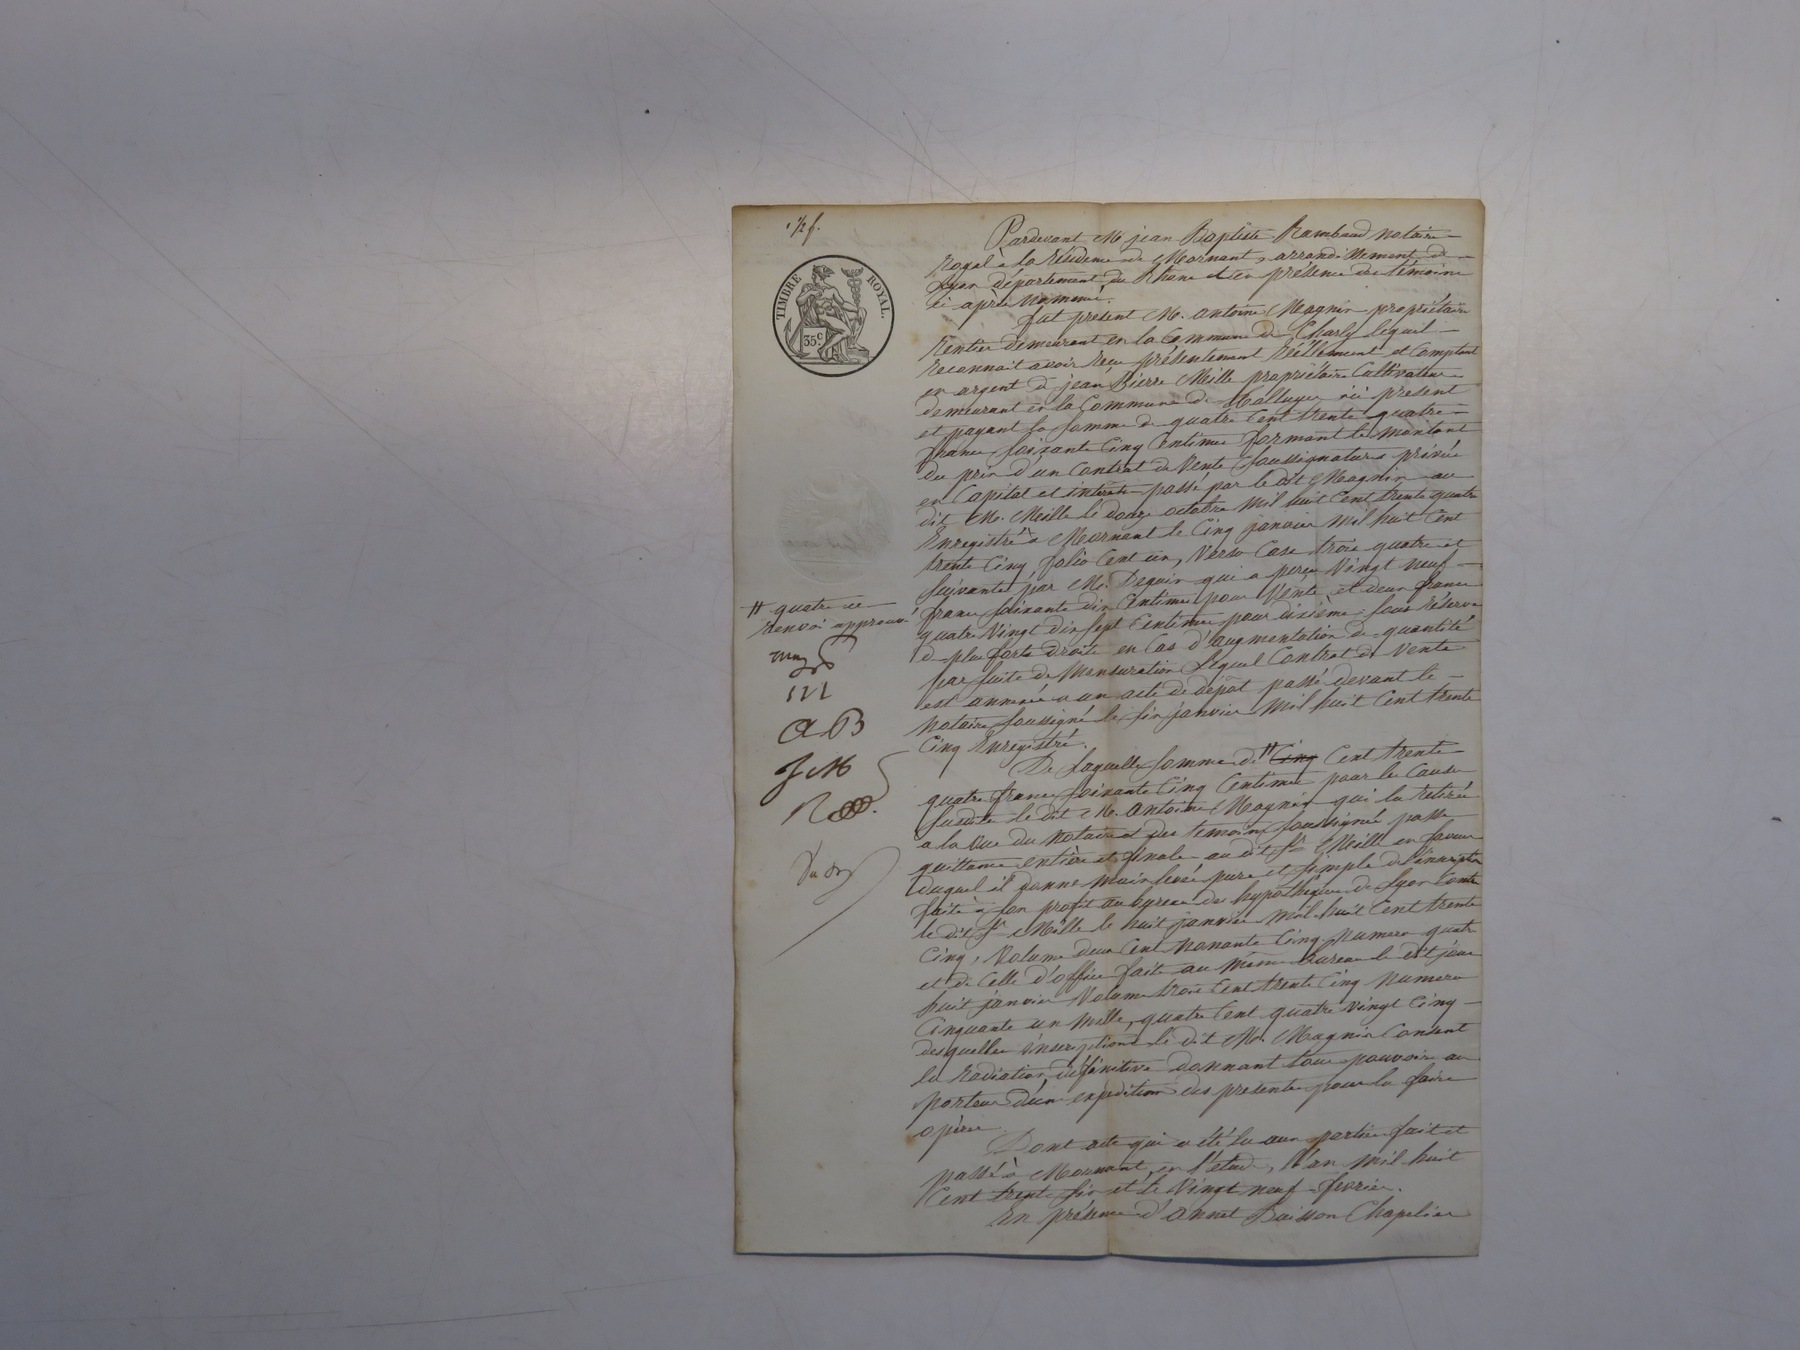 1/2 f.
TIMBRE ROYAL.
35 c
Pardevant Me jean Baptiste Rambaud notaire
Royal à la résidence de Mornant, arrondissement de
Lyon département du Rhône et en présence des témoins
ci après nommés.
fut present M. antoine Magnin propriétaire
Rentier demeurant en la Commune de Charly lequel
reconnait avoir reçu présentement réellement et Comptant
en argent de jean Pierre Mille propriétaire Cultivateur
demeurant en la Commune de ici present
et payant la Somme de quatre Cent trente quatre
francs soixante Cinq Centimes formant le montant
du prix d'un Contrat de Vente Soussignatures privées
en Capital et intérêts passé par le dit Magnin au
dit M. Mille le douze octobre mil huit Cent trente quatre
Enregistré à Mornant le Cinq janvier mil huit Cent
trente Cinq, folio Cent un, Verso Case trois quatre et
suivantes par Mr. Deguin qui a perçu Vingt neuf
francs soixante dix Centimes pour Vente et deux francs
quatre Vingt dix sept Centimes pour dixième sous réserve
de plus forts droits en Cas d'augmentation de quantité
par suite de Mensuration Lequel Contrat de Vente
est annexé a un acte de dépôt passé devant le
Notaire soussigné le six janvier mil huit Cent trente
Cinq Enregistré.
De laquelle somme de # Cinq Cent trente
quatre francs soixante Cinq Centimes pour les Causes
susdites le dit M. antoine Magnin qui la retirée
a la vue du Notaire et des temoins soussignés passe
quittance entière et finale au dit Sr Mille en faveur
duquel il donne main levée pure et simple de l'inscription
faite à son profit au bureau des hypothèques de Lyon Contre
le dit Sr Mille le huit janvier mil huit Cent trente
Cinq, Volume deux Cent nonante Cinq numero quatre
et de Celle d'office faite au même Bureau le dit jour
huit janvier Volume trois Cent trente Cinq numero
Cinquante un mille, quatre Cent quatre vingt Cinq
desquelles inscriptions le dit Mr. Magnin Consent
la radiation définitive donnant tous pouvoirs au
porteur d'une expédition des presentes pour la faire
opérer.
Dont acte qui a été lu aux parties fait et
passé à Mornant, en l'etude, l'an mil huit
Cent trente six et le Vingt neuf fevrier.
En présence d'annet Buisson Chapelier
# quatre ce
renvoi approuvé
A B
J M